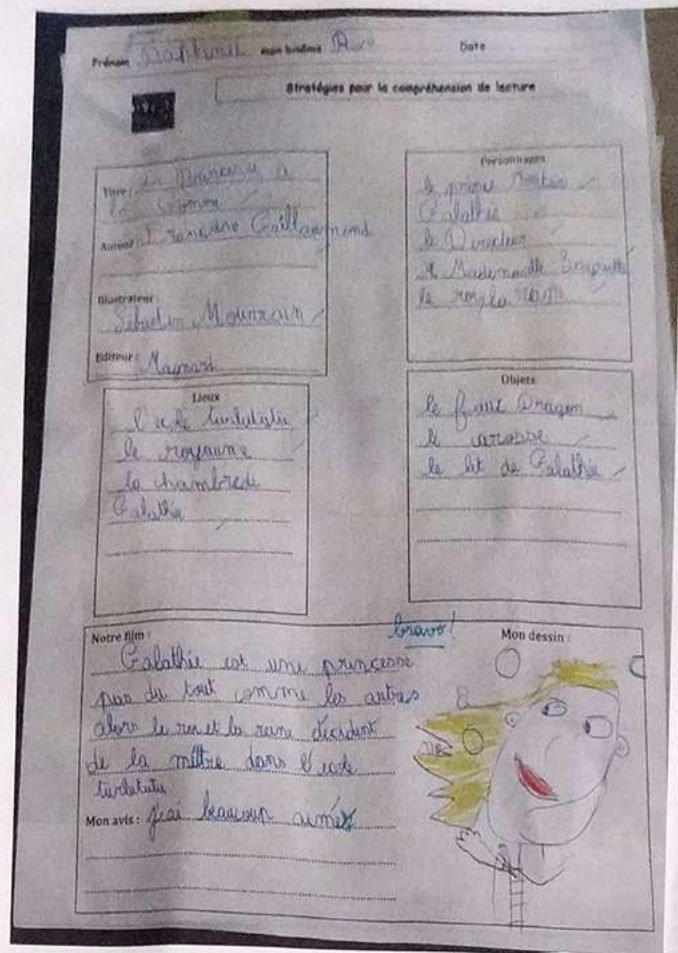 Prénom mon binôme Date
Stratégies pour la compréhension de lecture
Titre : la
Auteur : Francine
Illustrateur :
Sébastien Mourrain
Editeur : Magnard
Personnages
le prince
Galathée
le Directeur
Mademoiselle
le roy la reine
Lieux
l'école turlututu
le royaume
la chambre de
Galathée
Objets
le faux Dragon
le carosse
le lit de Galathée
bravo!
Notre film :
Galathée est une princesse
pas du tout comme les autres
alors le roi et la reine décident
de la mettre dans l'école
turlututu
Mon avis : J'ai beaucoup aimé
Mon dessin :